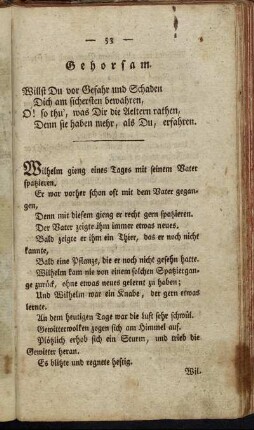 — 58 —
Gehorsam.
Willst Du vor Gefahr und Schaden
Dich am sichersten bewahren,
O! so thu', was Dir die Aeltern rathen,
Denn sie haben mehr, als Du, erfahren.
Wilhelm gieng eines Tages mit seinem Vater
spatzieren.
Er war vorher schon oft mit dem Vater gegan-
gen,
Denn mit diesem gieng er recht gern spatzieren.
Der Vater zeigte ihm immer etwas neues.
Bald zeigte er ihm ein Thier, das er noch nicht
kannte,
Bald eine Pflanze, die er noch nicht gesehn hatte.
Wilhelm kam nie von einem solchen Spatziergan-
ge zurück, ohne etwas neues gelernt zu haben;
Und Wilhelm war ein Knabe, der gern etwas
lernte.
An dem heutigen Tage war die Luft sehr schwül.
Gewitterwolken zogen sich am Himmel auf.
Plötzlich erhob sich ein Sturm, und trieb die
Gewitter heran.
Es blitzte und regnete heftig.
Wil-